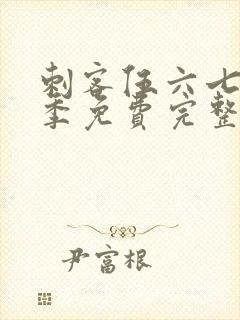 刺客伍六七
季免费完整
尹富根